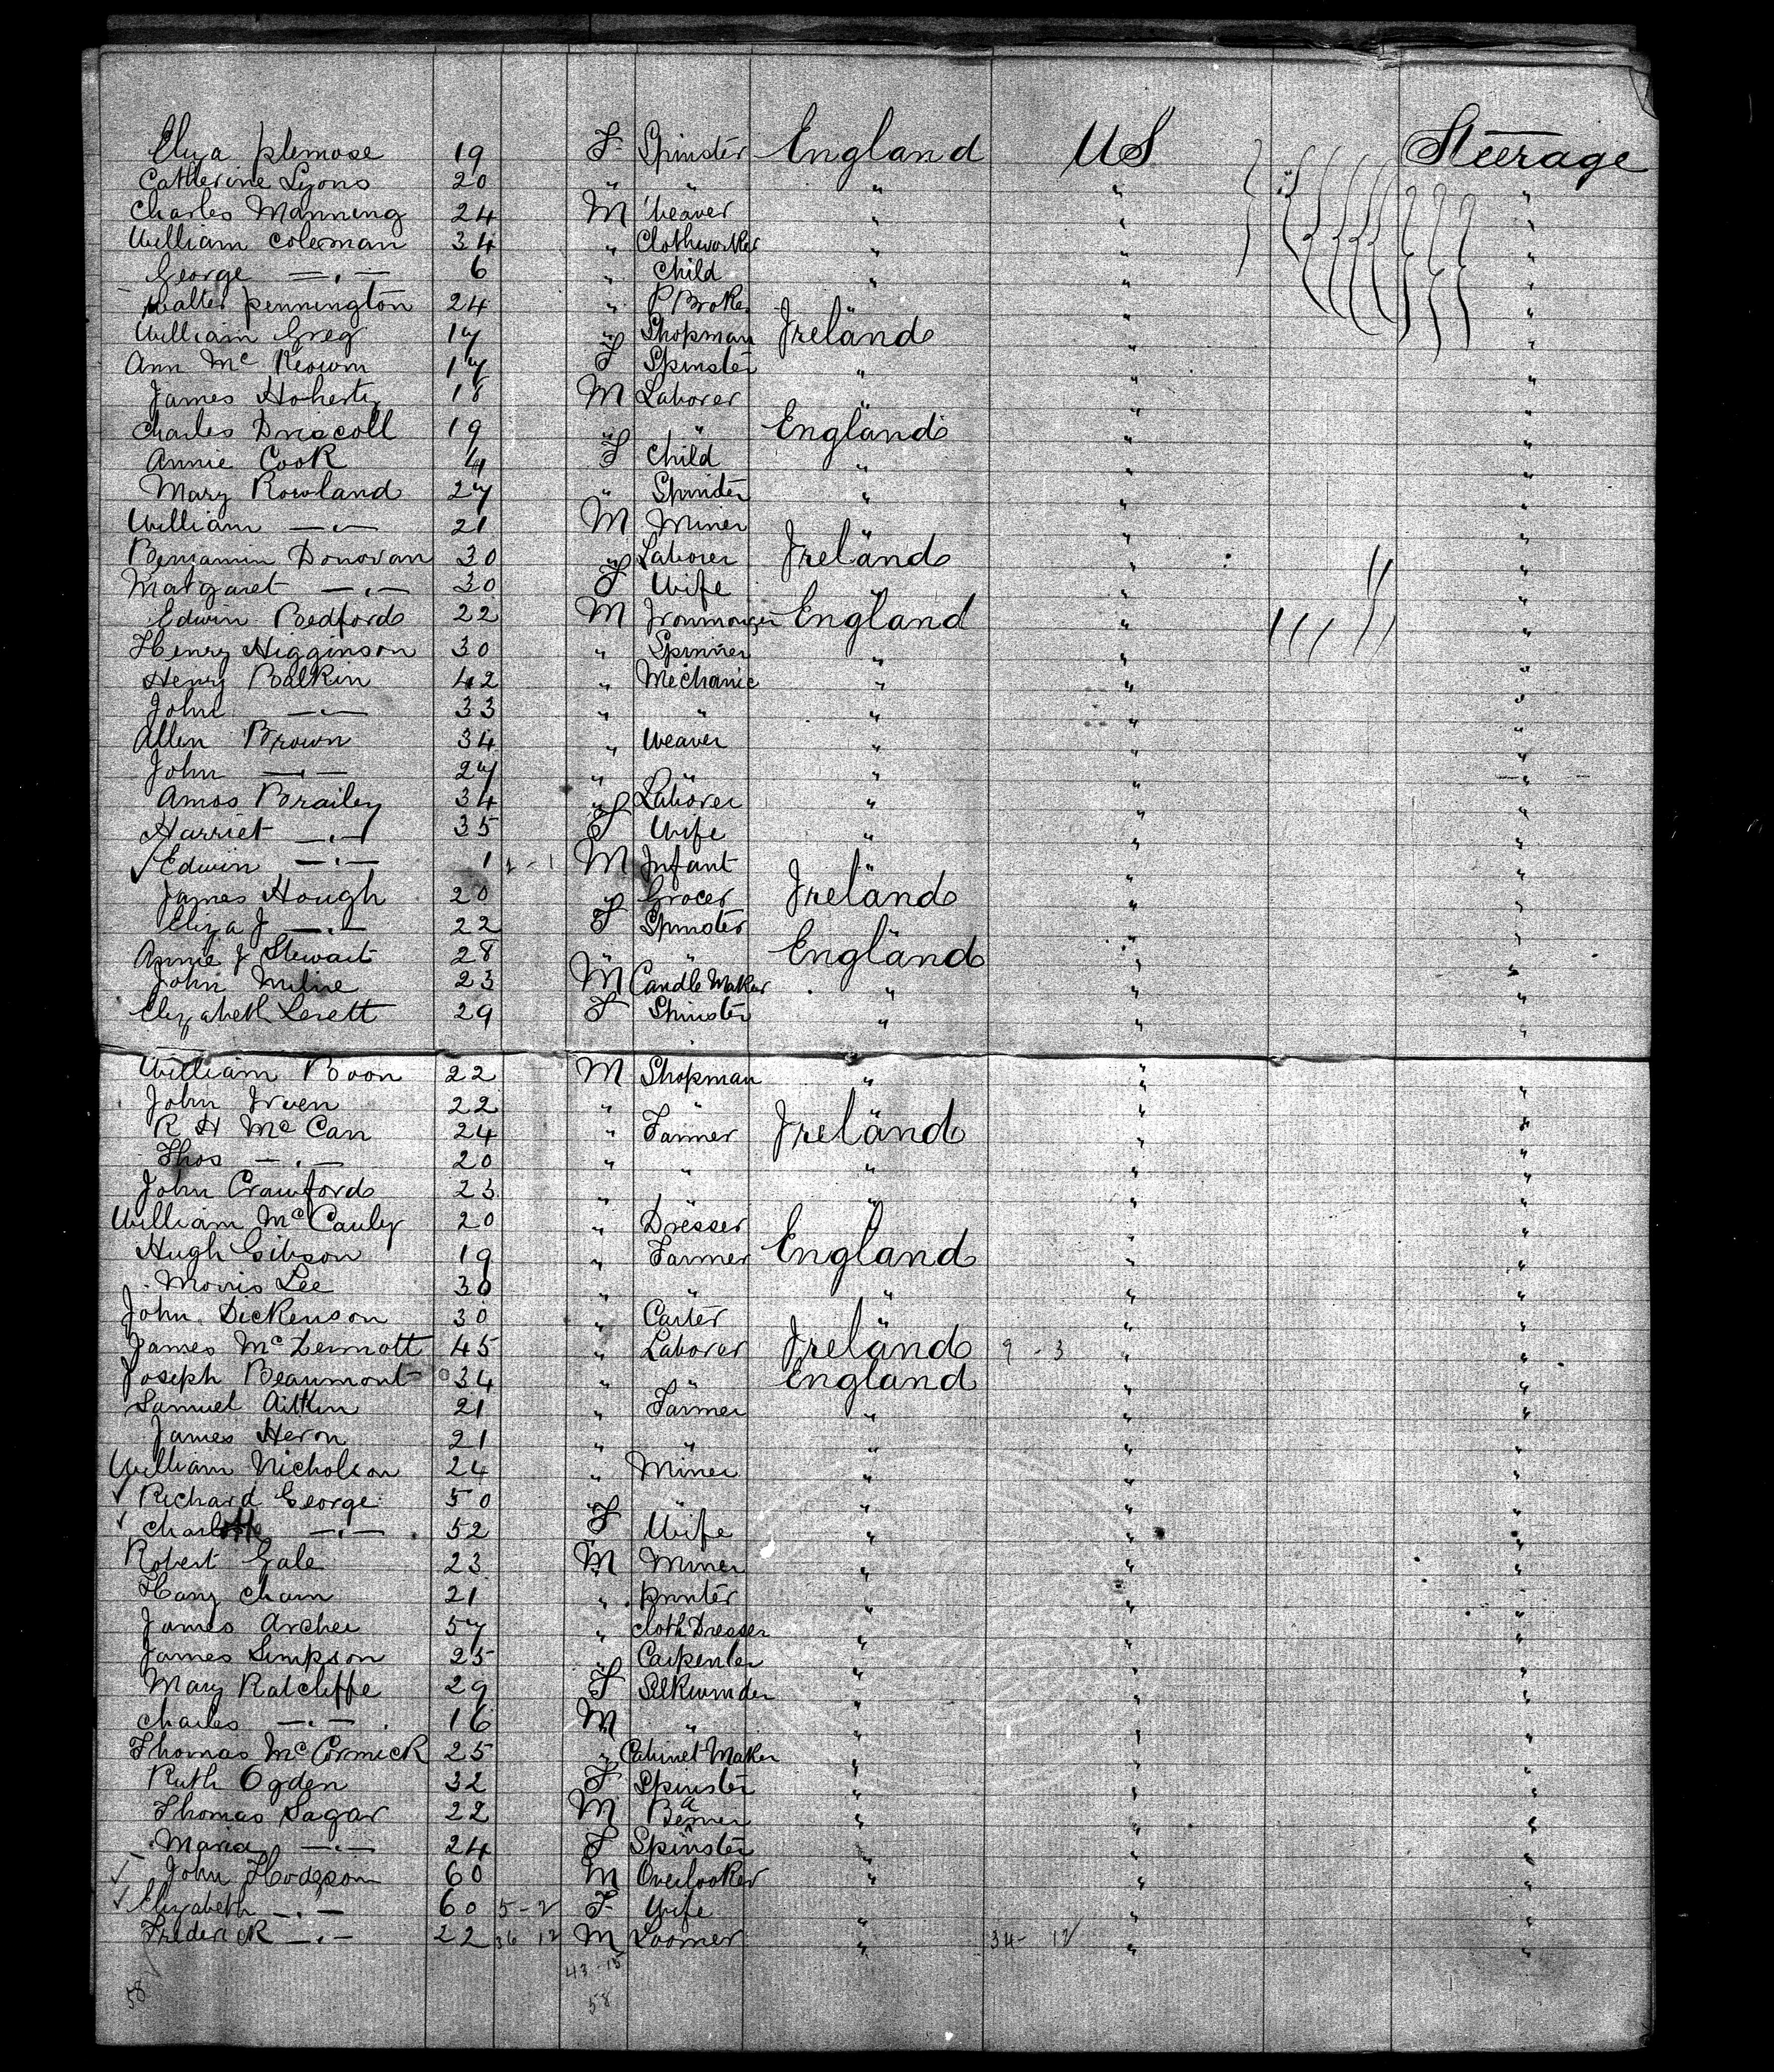 Eliza 19 F Spinster England US Steerage
Catherine Lyons 20 " " " " "
Charles Manning 24 M Weaver " " "
William Coleman 34 " Clothworker " " "
George —"— 6 " Child " " "
Walter Pennington 24 " P Broker " " "
William Greg 17 " Shopman Ireland " "
Ann Mc Keown 17 F Spinster " " "
James Hoherty 18 M Laborer " " "
Charles Driscoll 19 " " England " "
Annie Cook 4 F Child " " "
Mary Rowland 27 " Spinster " " "
William —"— 21 M Miner " " "
Benjamin Donovan 30 " Laborer Ireland " "
Margaret —"— 30 F Wife " " "
Edwin Bedford 22 M Ironmonger England " "
Henry Higginson 30 " Spinner " " "
Henry Balkin 42 " Mechanic " " "
John —"— 33 " " " " "
Allen Brown 34 " Weaver " " "
John —"— 27 " " " " "
Amos Brailey 34 " Laborer " " "
Harriet —"— 35 F Wife " " "
Edwin —"— 1 2-1 M Infant " " "
James Hough 20 " Grocer Ireland " "
Eliza J —"— 22 F Spinster " "
Annie J Stewart 28 " " England " "
John Milne 23 M Candle Maker " " "
Elizabeth Levett 29 F Spinster " " "
William Boon 22 M Shopman " " "
John Irven 22 " " " "
R H Mc Can 24 " Farmer Ireland " "
Thos —"— 20 " " " " "
John Crawford 23 " " " "
William Mc Cauley 20 " Dresser " " "
Hugh Gibson 19 " Farmer England " "
Morris Lee 30 " " " " "
John Dickenson 30 " Carter " "
James McDermott 45 " Laborer Ireland 9-3 " "
Joseph Beaumont 34 " " England " "
Samuel Aitkin 21 " Farmer " " "
James Heron 21 " " " " "
William Nicholson 24 " Miner " " "
Richard George 50 " " " " "
Charlotte —"— 52 F Wife " " "
Robert Gale 23 M Miner " " "
Harry Cham 21 " Printer " " "
James Archer 57 " Cloth Dresser " " "
James Simpson 25 " Carpenter " " "
Mary Ratcliffe 29 F Silkwinder " " "
Charles —"— 16 M " " " "
Thomas McCormick 25 " Cabinet Maker " " "
Ruth Ogden 32 F Spinster " " "
Thomas Sagar 22 M Beamer " " "
Maria —"— 24 F Spinster " " "
John Hodgson 60 M Overlooker " " "
Elizabeth —"— 60 5-2 F Wife " "
Frederick —"— 22 36 12 M Loomer " 34-12 " "
43-15
58 58